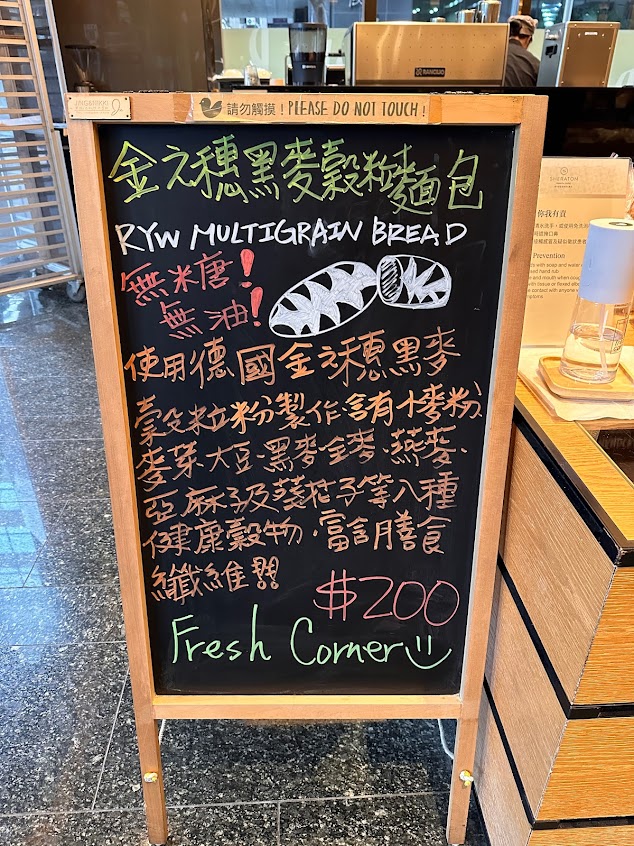 請勿觸摸！PLEASE DO NOT TOUCH！
金之穗黑麥穀粒麵包
RYW MULTIGRAIN BREAD
無米唐！
無油！
使用德國金之穗黑麥
穀粒粉製作.含有小麥粉.
麥芽.大豆.黑麥全麥.燕麥.
亞麻子及葵花子等八種
健康穀物，富含膳食
纖維!!
$200
Fresh Corner
RANCILIO
SHERATON
你我有責
Prevention